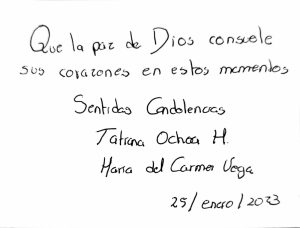 Que la paz de Dios consuele
sus corazones en estos momentos
Sentidas Condolencias
Tatiana Ochoa H.
Maria del Carmen Vega
25/enero/2023